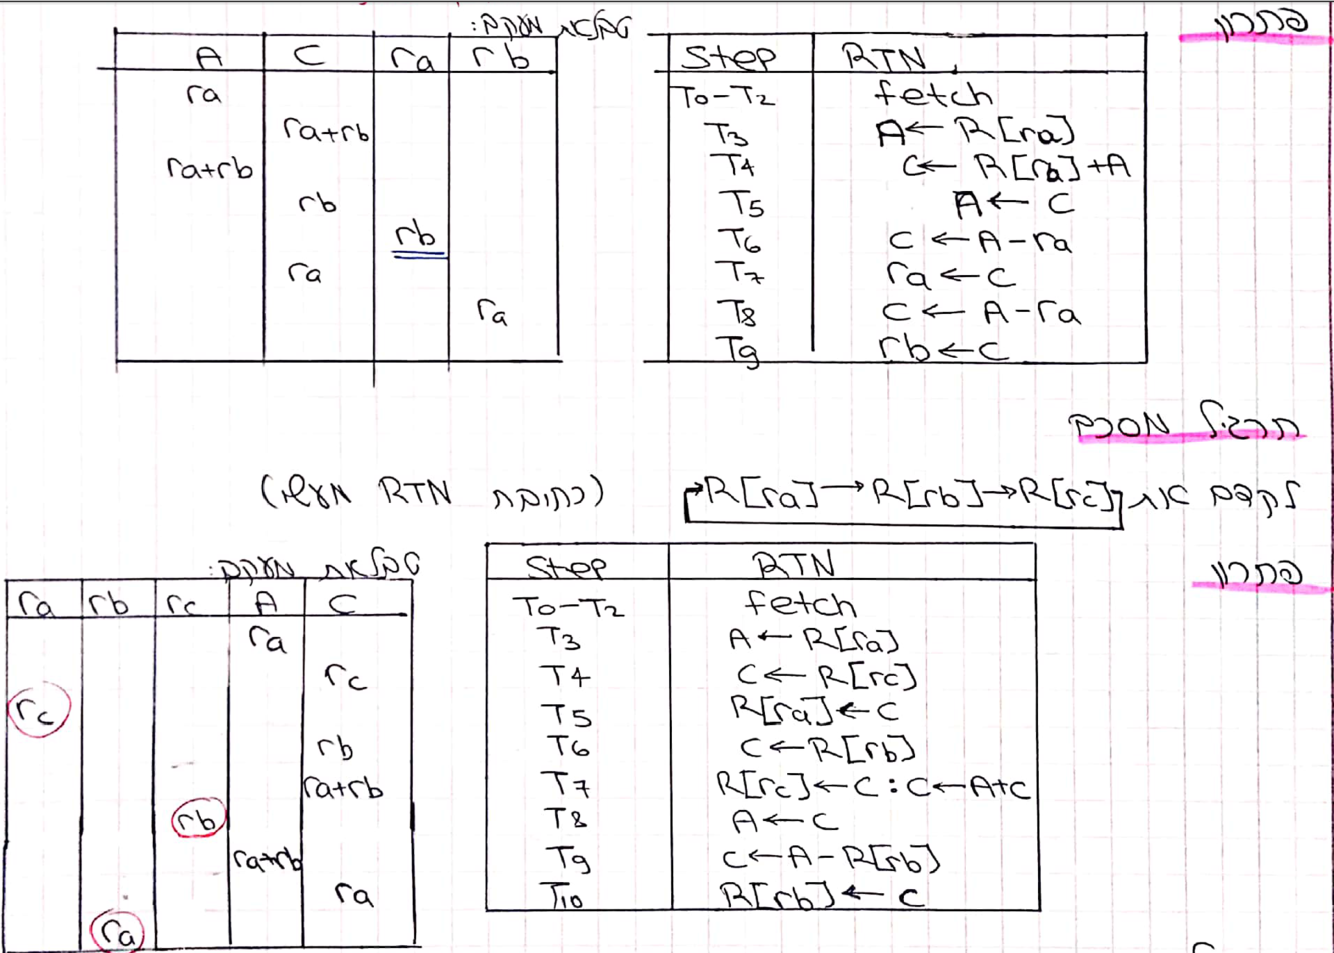 פתרון
Step RTN
T0-T2 fetch
T3 A ← R[ra]
T4 C ← R[rb]+A
T5 A ← C
T6 C ← A-ra
T7 ra ← C
T8 C ← A-ra
T9 rb ← C
טבלאת מעקב:
A C ra rb
ra
ra+rb
ra+rb
rb
rb
ra
ra
תרגיל מסכם
לקדם את R[ra] → R[rb] → R[rc] (כתיבת RTN מעשי)
פתרון
Step RTN
T0-T2 fetch
T3 A ← R[ra]
T4 C ← R[rc]
T5 R[ra] ← C
T6 C ← R[rb]
T7 R[rc] ← C : C ← A+C
T8 A ← C
T9 C ← A-R[rb]
T10 R[rb] ← C
טבלאת מעקב:
ra rb rc A C
ra
rc
rc
rb
ra+rb
rb
ra+rb
ra
ra